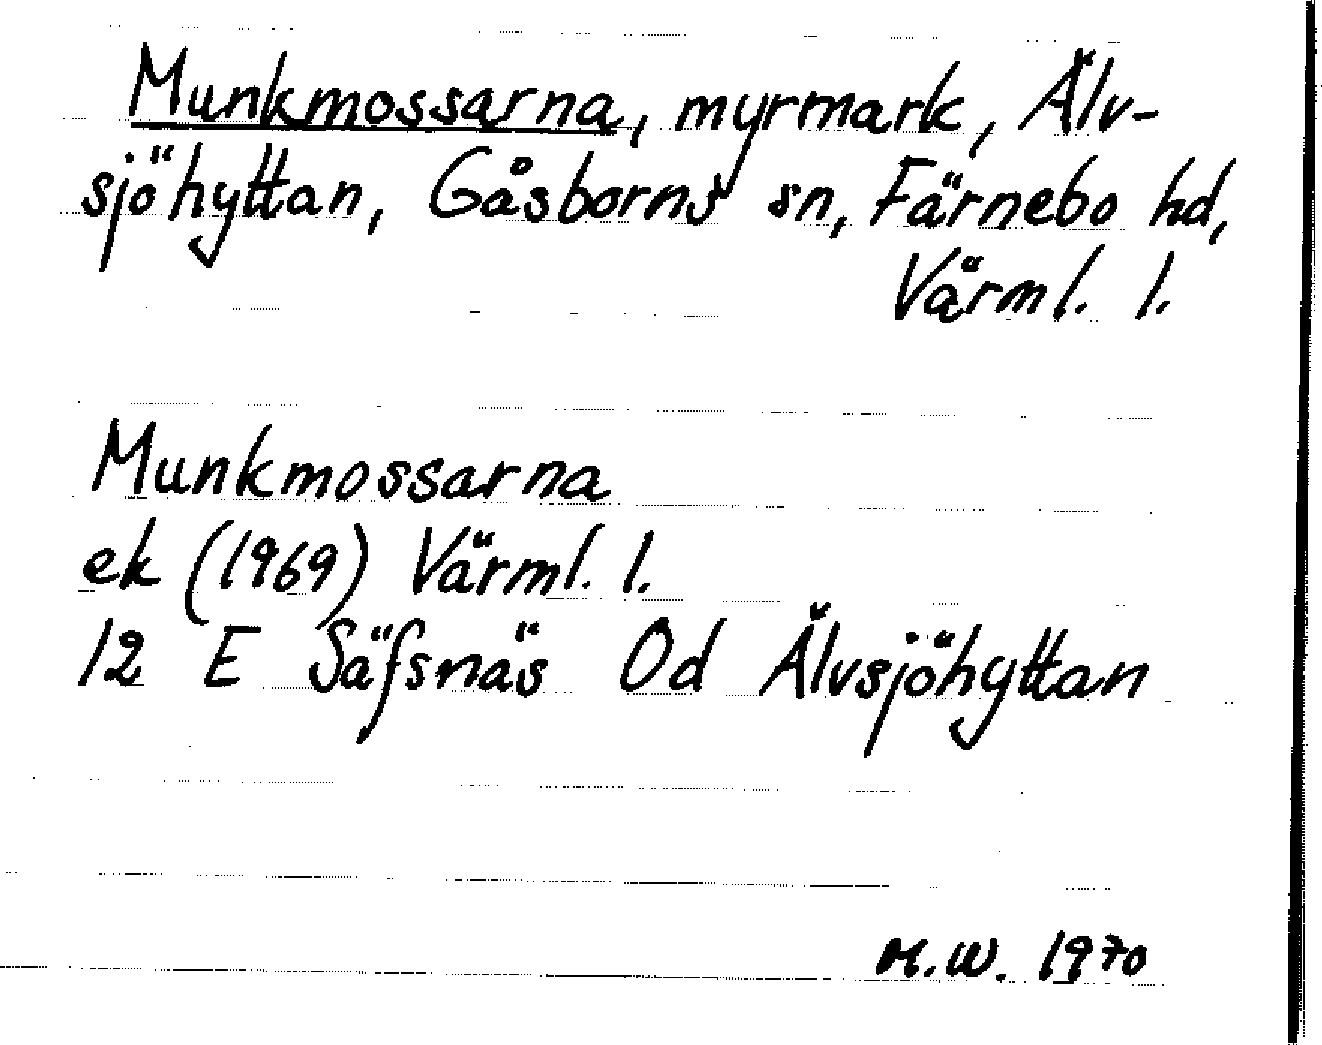 Munkmossarna, myrmark, Älv-
sjöhyttan, Gåsborns sn, Färnebo hd,
Värml. l.
Munkmossarna
ek (1969) Värml. l.
12 E Säfsnäs Od Älvsjöhyttan
M.W. 1970